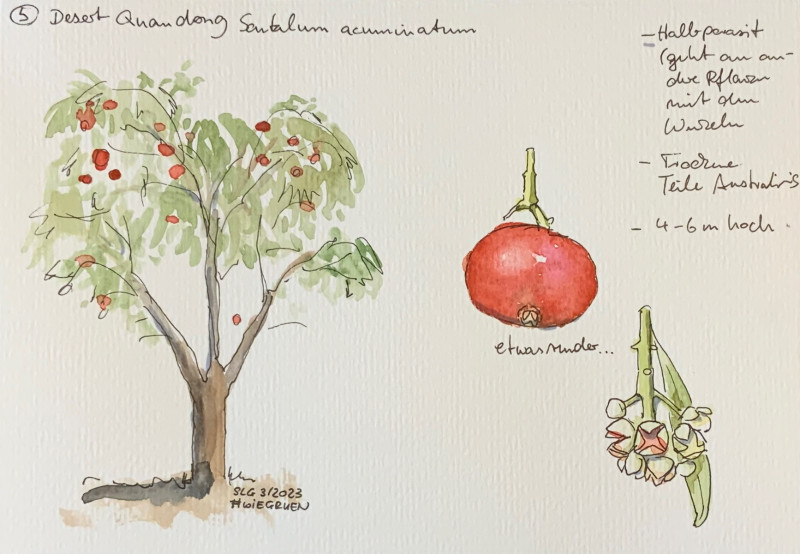 ⑤ Desert Quandong Santalum acuminatum
- Halbparasit
(geht an an-
dre Pflanzen
mit den
Wurzeln
- Trockene
Teile Australiens
- 4-6 m hoch.
etwas runder...
SLG 3/2023
#WIEGRUEN